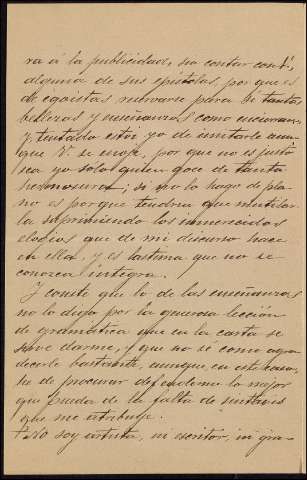 ra á la publicidad, sin contar con V.,
alguna de sus epístolas, por que es
de egoistas reservarse para sí tantas
bellezas y enseñanzas como encierran,
y tentado estoy yo de imitarle aun
que V. se enoje, por que no es justo
sea yo solo quien goce de tanta
hermosura; si no lo hago de pla-
no es por que tendria que mutilar
la suprimiendo los inmerecidos
elogios que de mi discurso hace
en ella, y es lástima que no se
conozca íntegra.
Y conste que lo de las enseñanzas
no lo digo por la generosa leccion
de gramática que en la carta se
sirve darme, y que no sé como agra
decerle bastante, aunque, en este caso,
he de procurar defenderme lo mejor
que pueda de la falta de sintaxis
que me atribuye.
No soy artista, ni escritor, ni gra-